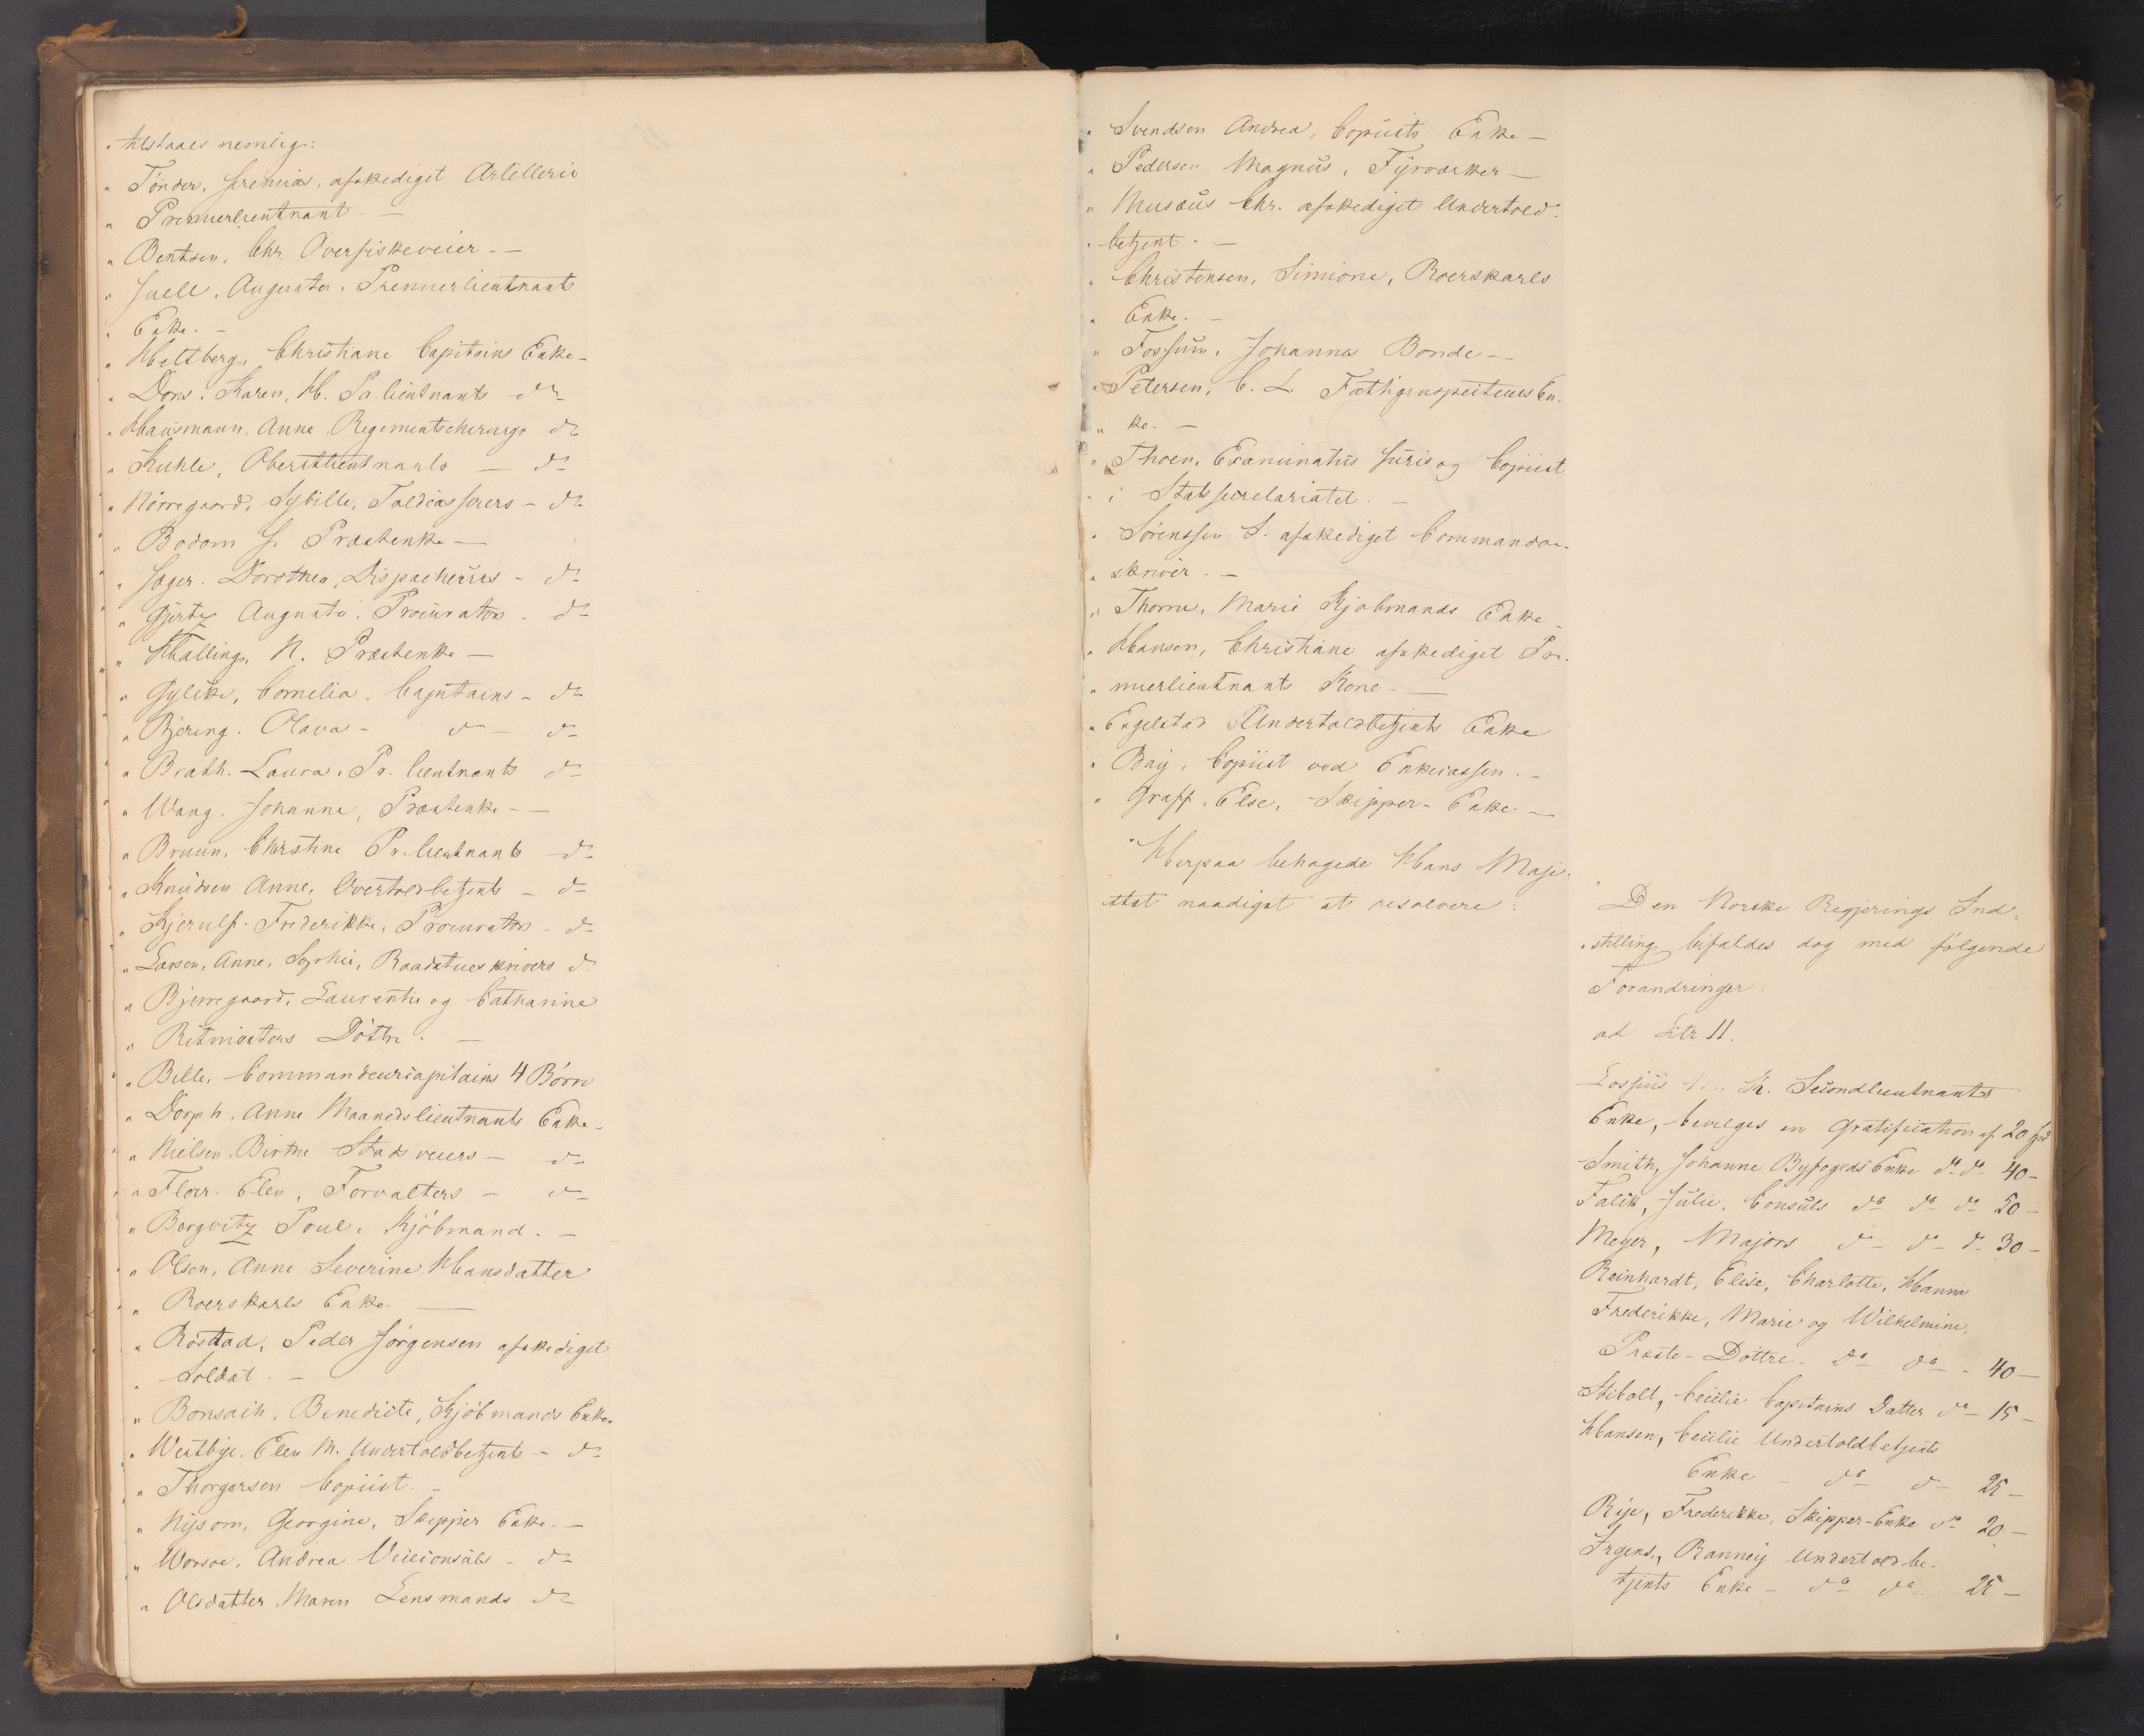 " tilstaaes nemlig:
" Tönder, Jeremias, afskediget Artillerie
" Premierlieutnant. —
" Bentsen, Chr. Overfiskeveier - —
" Juell, Augusta. Premierlieutnants
" Enke. —
" Heltberg, Christiane Capitains Enke -
" Dons. Karen, H. Pr. lieutnants do
" Hausmann. Anne Regimentschirurgs do
" Kuhle, Oberstlieutnants — do
" Nörregaard, Sybille, Toldkasserers - do
" Bodom J. Præstenke —
" Jæger. Dorothea, Dispacheurs - do
" Gjertz Augusta. Procurators - do
" Halling, N. Præstenke —
" Gylike, Cornelia. Capitains - do
" Bjering. Olava - do - do
" Brath. Laura. Pr. lieutnants do
" Wang. Johanne, Præstenke - —
" Bruun, Christine Pr. lieutnants - do
" Knudsen Anne, Overtoldbetjents - do
" Kjerulf. Frederikke, Procurators - do
" Larsen, Anne, Sophie, Raadstueskrivers do
" Bjerregaard, Laurentia og Catharine
" Ritmesters Döttre. —
" Bille, Commandeurcapitains 4 Börn
" Dorph. Anne Maanedslieutnants Enke -
" Nielsen. Birthe Stadsveiers - do
" Floer. Elen, Forvalters - do
" Borgvitz Poul. Kjöbmand. —
" Olsen, Anne Severine Hansdatter
" Roerskarls Enke. —
" Röstad, Peder Jörgensen afskediget
" Soldat. —
" Bonsach, Benedicte, Kjöbmands Enke.
" Westbye. Elen M. Undertoldbetjents - do
" Thorgersen Copiist. —
" Nysom, Georgine, Skipper Enke. —
" Worsoe, Andrea Viceconsuls - do
" Olsdatter Maren Lensmands do
" Svendsen Andrea, Copiists Enke —
" Pedersen Magnus, Fyrvarker —
" Musæus Chr. afskediget Undertold-
" betjent. —
" Christensen, Simione, Roerskarls
" Enke. —
" Fossum, Johannes Bonde —
" Petersen, C. L. Fattiginspecteurs En-
" ke. —
" Thoen, Examinatus Juris og Copiist
" i Statssecretariatet. —
" Sörenssen S. afskediget Commandeur-
" skriver. —
" Thorne, Marie Kjöbmands Enke -
" Hansen, Christiane afskediget Pre-
" mierlieutnants Kone - —
" Engelstad Undertoldbetjents Enke
" Bay, Copiist ved Enkecassen. —
" Graff. Else, Skipper-Enke —
" Herpaa behagede Hans Maje-
stæt naadigst at resolvere:
Den Norske Regjerings Ind-
" stilling bifaldes dog med fölgende
Forandringer:
ad Litr 11.
K. Secondlieutnants
Enke, bevilges en Gratification af 20 Spd
Smith, Johanne Byfogeds Enke do do 40 -
Falck, Julie, Consuls do do do 50 -
Meyer, Majors do - do - do 30 -
Reinhardt, Elise, Charlotte, Hanna
Frederikke, Marie og Wilhelmine,
Præste-Döttre. do do - 40 -
Stibolt, Cecilie Capitains Datter do - 15 -
Hansen, Cecilie Undertoldbetjents
Enke - do do 25 -
Rije, Frederikke, Skipper-Enke do 20 -
Irgens, Ranney Undertoldbe-
tjents Enke - do do 25 -